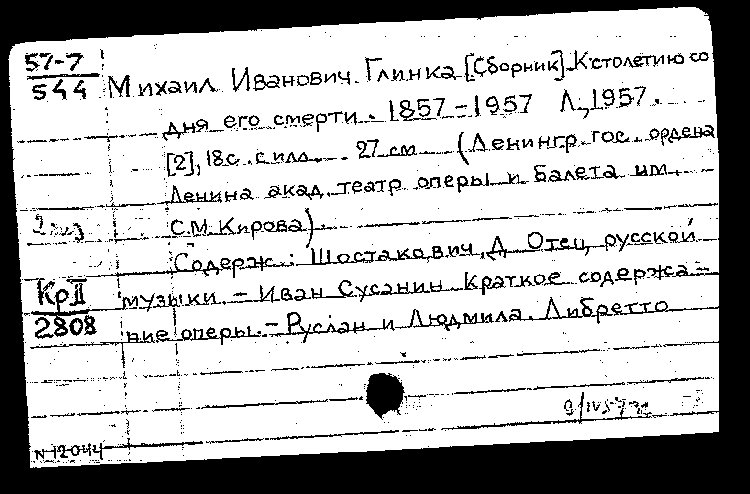 57-7
544
Михаил Иванович Глинка [Сборник]. К столетию со
дня его смерти. 1857-1957 Л., 1957.
[2], 18с. с илл. 27 см (Ленингр. гос. ордена
Ленина акад. театр оперы и балета им.
2 экз
С.М. Кирова).
Содерж.: Шостакович, Д. Отец русской
Кр II
2808
музыки. - Иван Сусанин. Краткое содержа-
ние оперы. - Руслан и Людмила. Либретто
9/IV 57
N 12044